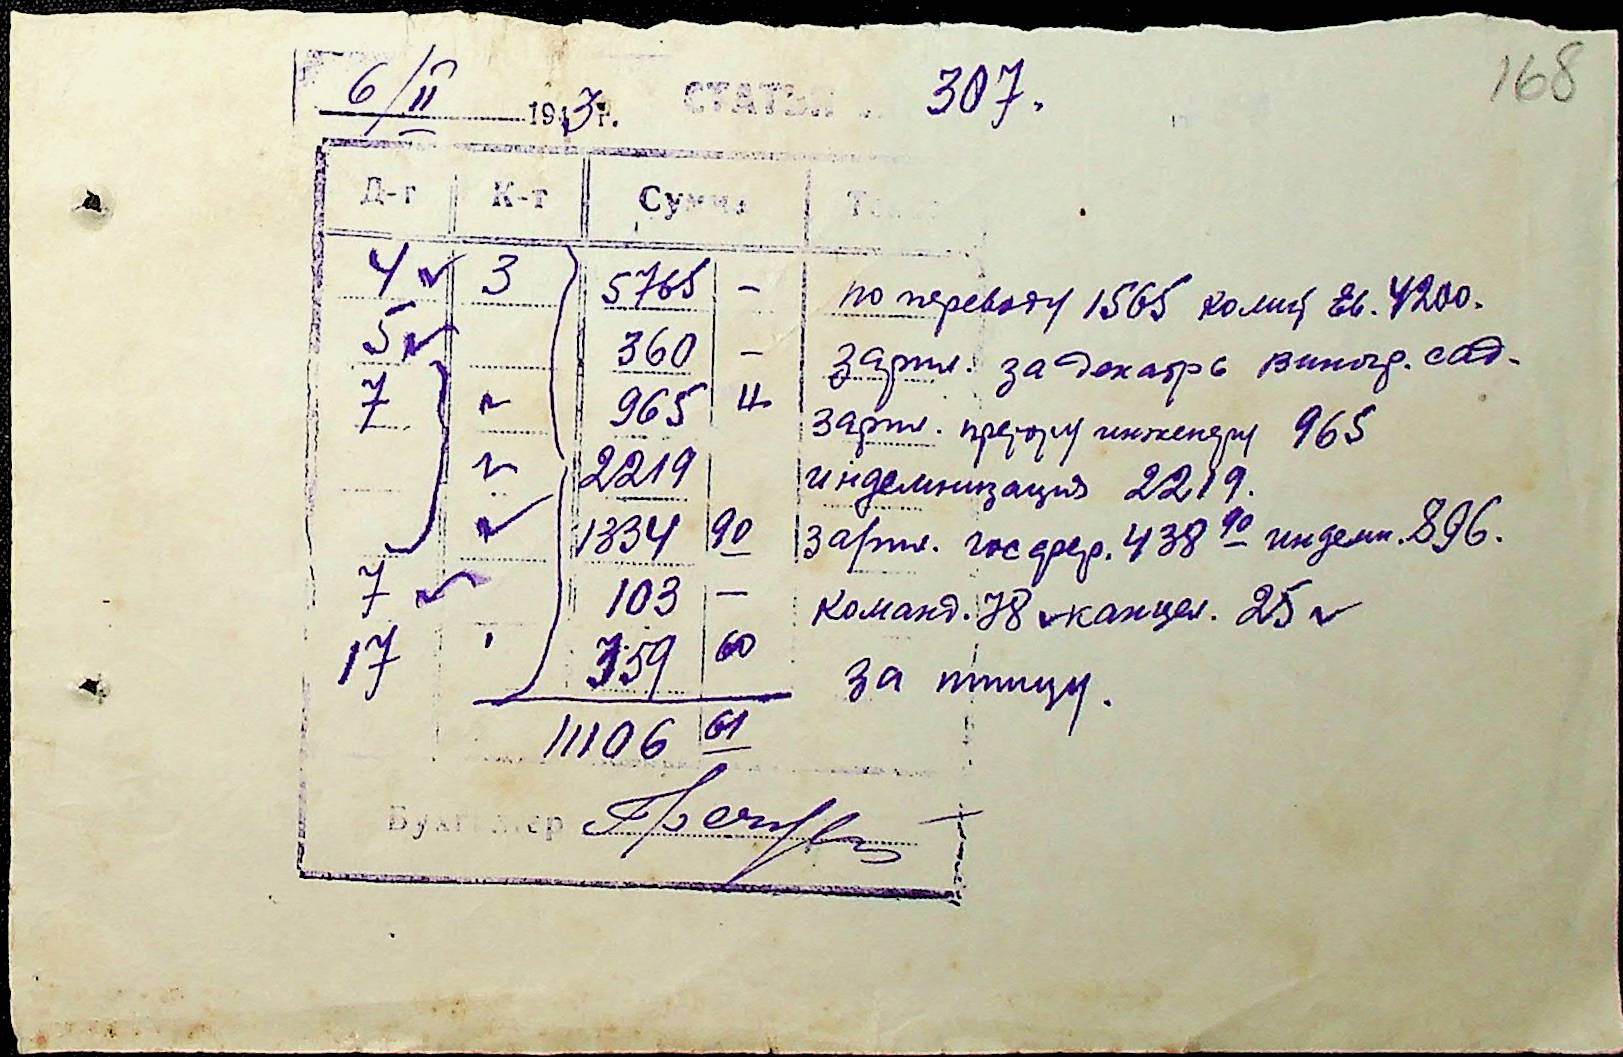 168
6/II 1943 г. СТАТЬЯ 307.
Д-т К-т Сумма Текст
4 3 5765 - по переводу 1565 комит Ев. 4200.
5 360 - зарпл. за декабрь виногр. сад.
7 965 11 зарпл. претору инженеру 965
2219 индемнизация 2219.
1334 90 зарпл. 438 90 индемн. 896.
7 103 - команд. 78 канцел. 25
17 359 60 за птицу.
11106 61
Бухгалтер